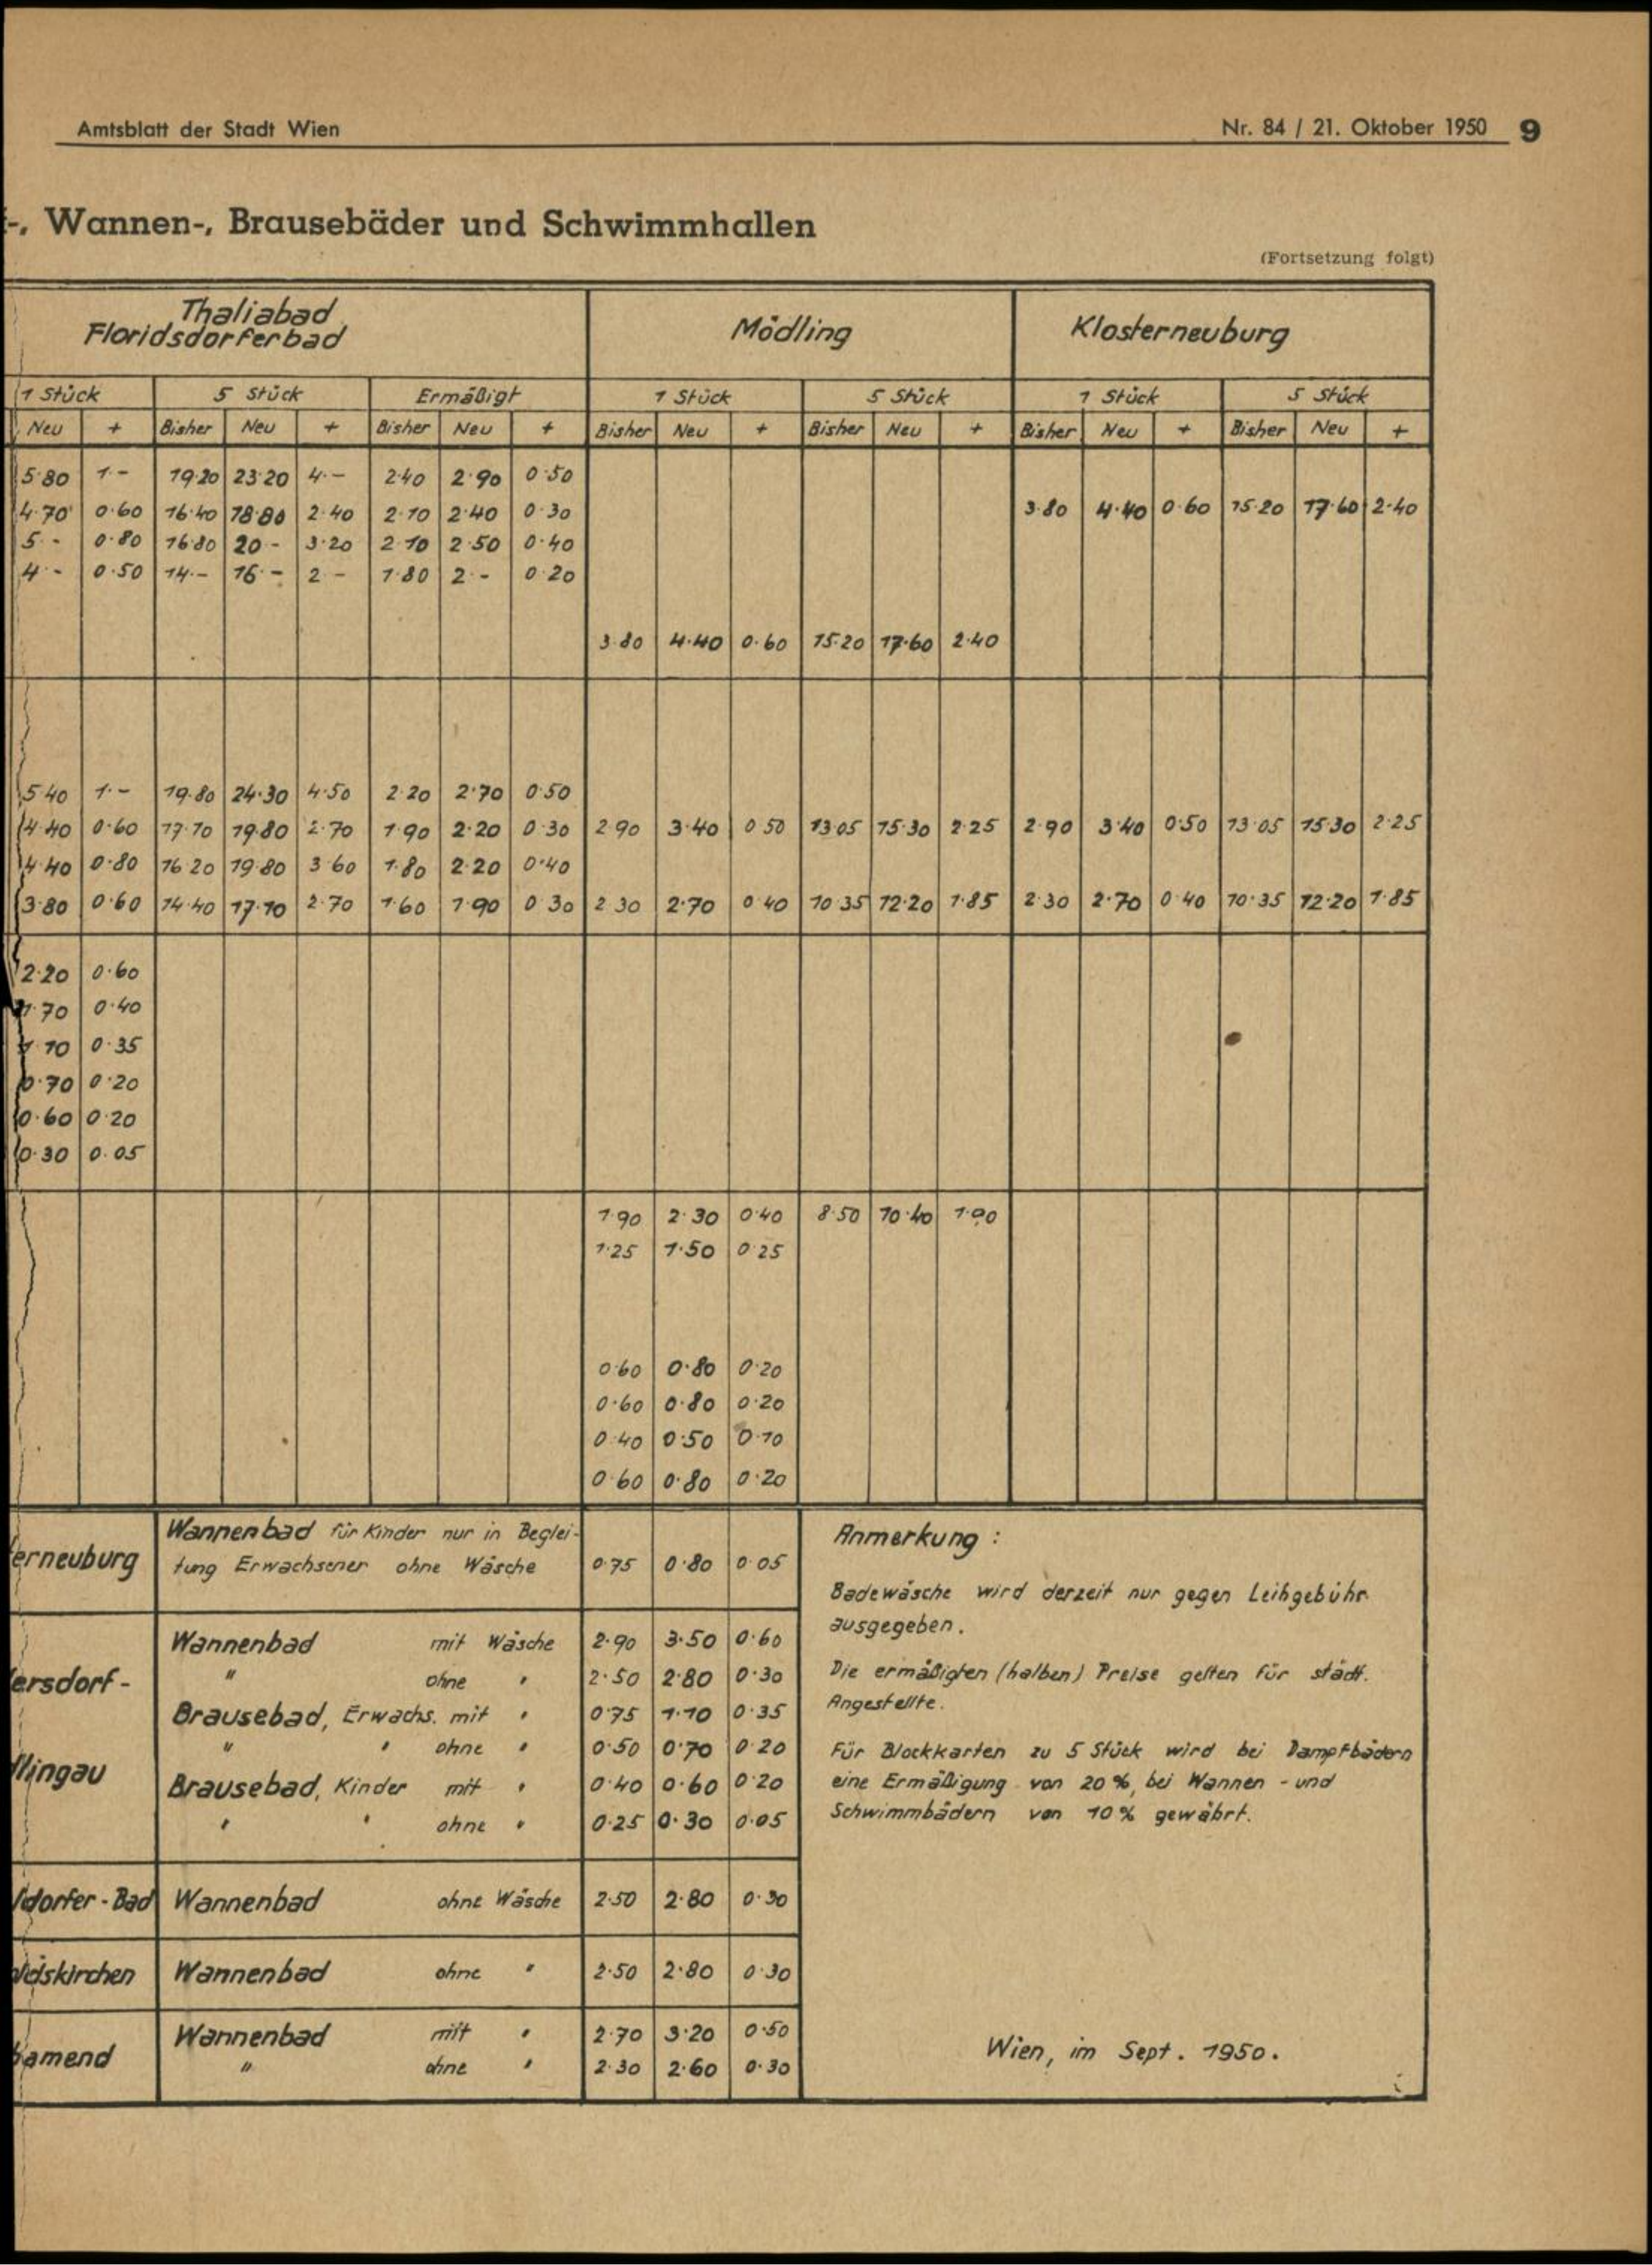 Amtsblatt der Stadt Wien Nr. 84 / 21. Oktober 1950 9
-, Wannen-, Brausebäder und Schwimmhallen
(Fortsetzung folgt)
Thaliabad
Floridsdorferbad Mödling Klosterneuburg
1 Stück 5 Stück Ermäßigt 1 Stück 5 Stück 1 Stück 5 Stück
Neu + Bisher Neu + Bisher Neu + Bisher Neu + Bisher Neu + Bisher Neu + Bisher Neu +
5·80 1·- 19·20 23·20 4·- 2·40 2·90 0·50
4·70 0·60 16·40 18·80 2·40 2·10 2·40 0·30 3·80 4·40 0·60 15·20 17·60 2·40
5·- 0·80 16·80 20·- 3·20 2·10 2·50 0·40
4·- 0·50 14·- 16·- 2·- 1·80 2·- 0·20
3·80 4·40 0·60 15·20 17·60 2·40
5·40 1·- 19·80 24·30 4·50 2·20 2·70 0·50
4·40 0·60 17·10 19·80 2·70 1·90 2·20 0·30 2·90 3·40 0·50 13·05 15·30 2·25 2·90 3·40 0·50 13·05 15·30 2·25
4·40 0·80 16·20 19·80 3·60 1·80 2·20 0·40
3·80 0·60 14·40 17·10 2·70 1·60 1·90 0·30 2·30 2·70 0·40 10·35 12·20 1·85 2·30 2·70 0·40 10·35 12·20 1·85
2·20 0·60
1·70 0·40
1·10 0·35
0·70 0·20
0·60 0·20
0·30 0·05
1·90 2·30 0·40 8·50 10·40 1·90
1·25 1·50 0·25
0·60 0·80 0·20
0·60 0·80 0·20
0·40 0·50 0·10
0·60 0·80 0·20
Wannenbad für Kinder nur in Beglei-
erneuburg tung Erwachsener ohne Wäsche 0·75 0·80 0·05
Wannenbad mit Wäsche 2·90 3·50 0·60
ersdorf- " ohne " 2·50 2·80 0·30
Brausebad, Erwachs. mit " 0·75 1·10 0·35
" " ohne " 0·50 0·70 0·20
llingau Brausebad, Kinder mit " 0·40 0·60 0·20
" " ohne " 0·25 0·30 0·05
dorfer-Bad Wannenbad ohne Wäsche 2·50 2·80 0·30
dskirchen Wannenbad ohne " 2·50 2·80 0·30
Wannenbad mit " 2·70 3·20 0·50
amend " ohne " 2·30 2·60 0·30
Anmerkung :
Badewäsche wird derzeit nur gegen Leihgebühr
ausgegeben.
Die ermäßigten (halben) Preise gelten für städt.
Angestellte.
Für Blockkarten zu 5 Stück wird bei Dampfbädern
eine Ermäßigung von 20 %, bei Wannen - und
Schwimmbädern von 10 % gewährt.
Wien, im Sept. 1950.